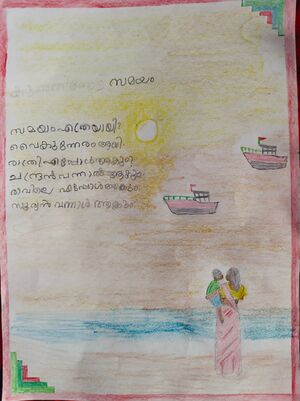 സമയം
സമയംഎത്രയായി?
വൈകുന്നേരം ആയി.
രാത്രി എപ്പോൾ ആകും
ചന്ദ്രൻ വന്നാൽ ആകും.
രാവിലെ എപ്പോൾ ആകും
സൂര്യൻ വന്നാൾ ആകും